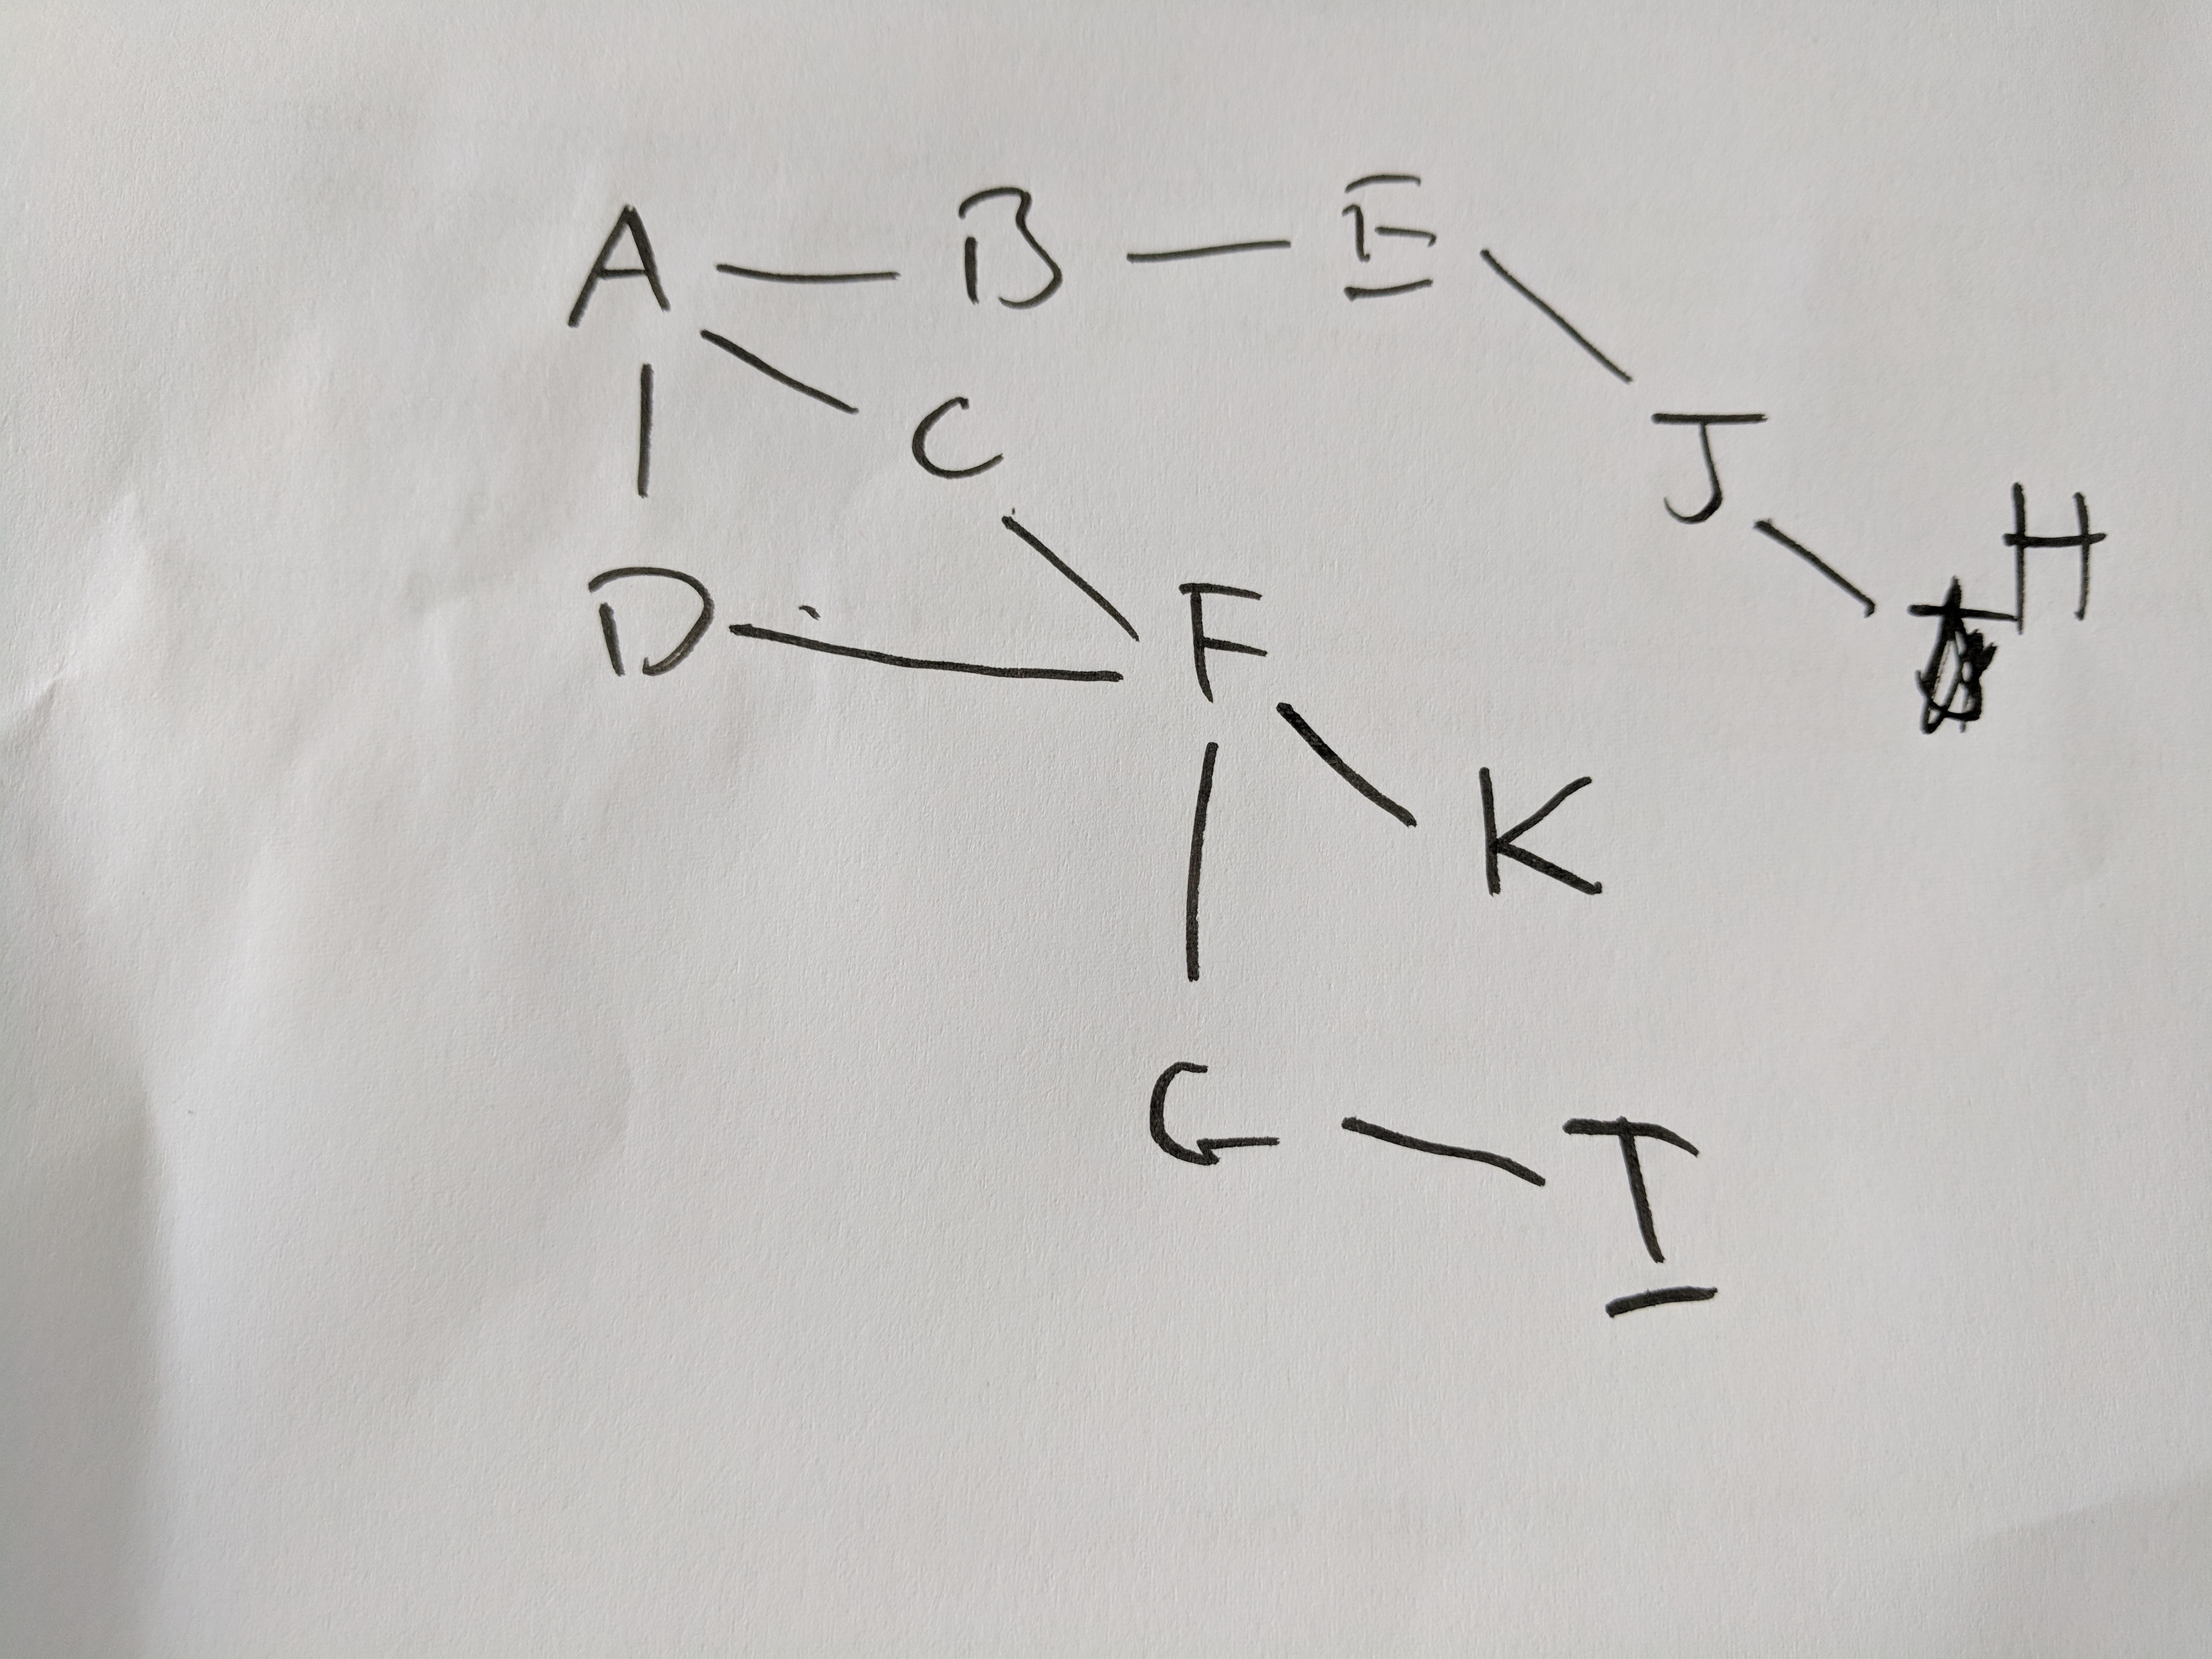 A B E
C
J
H
D F
K
G I